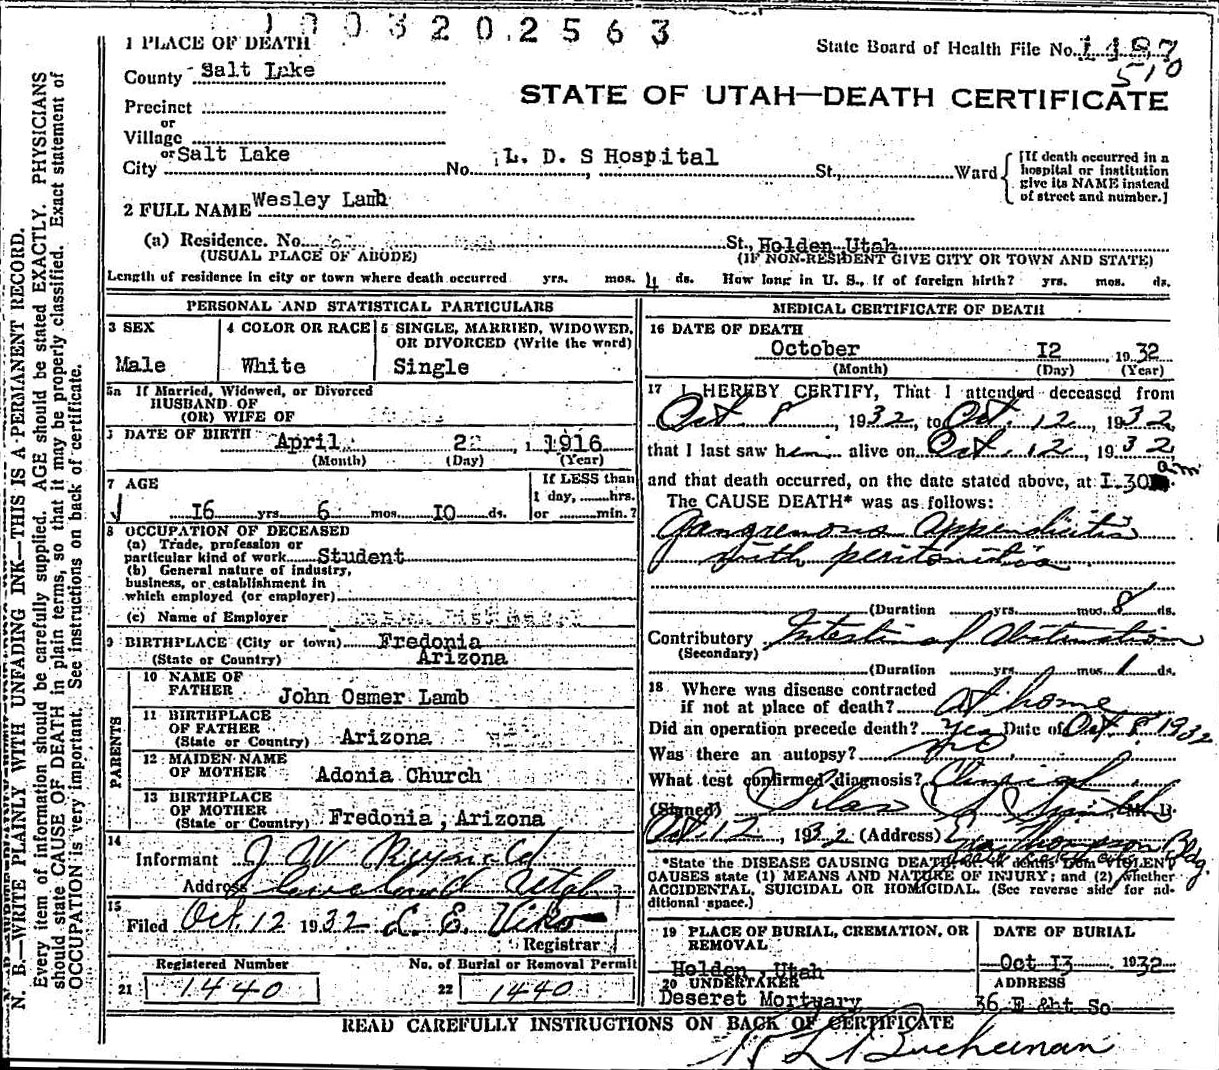 1003202563
1 PLACE OF DEATH
State Board of Health File No. 1487
510
County Salt Lake
STATE OF UTAH—DEATH CERTIFICATE
Precinct
or
Village
or
City Salt Lake No. L. D. S Hospital St., Ward
[If death occurred in a hospital or institution give its NAME instead of street and number.]
2 FULL NAME Wesley Lamb
(a) Residence. No. St., Holden Utah
(USUAL PLACE OF ABODE) (IF NON-RESIDENT GIVE CITY OR TOWN AND STATE)
Length of residence in city or town where death occurred yrs. mos. 4 ds. How long in U. S., if of foreign birth? yrs. mos. ds.
PERSONAL AND STATISTICAL PARTICULARS
3 SEX
Male
4 COLOR OR RACE
White
5 SINGLE, MARRIED, WIDOWED, OR DIVORCED (Write the word)
Single
5a If Married, Widowed, or Divorced
HUSBAND OF
(OR) WIFE OF
DATE OF BIRTH April 2 , 1916
(Month) (Day) (Year)
7 AGE
If LESS than
1 day, hrs.
or min.?
16 yrs. 6 mos. 10 ds.
8 OCCUPATION OF DECEASED
(a) Trade, profession or
particular kind of work Student
(b) General nature of industry,
business, or establishment in
which employed (or employer)
(c) Name of Employer
9 BIRTHPLACE (City or town) Fredonia
(State or Country) Arizona
PARENTS
10 NAME OF
FATHER John Osmer Lamb
11 BIRTHPLACE
OF FATHER
(State or Country) Arizona
12 MAIDEN NAME
OF MOTHER Adonia Church
13 BIRTHPLACE
OF MOTHER
(State or Country) Fredonia, Arizona
14
Informant J W
Address Utah
15
Filed Oct 12 1932
Registrar
Registered Number
21 1440
No. of Burial or Removal Permit
22 1440
MEDICAL CERTIFICATE OF DEATH
16 DATE OF DEATH
October I2 , 1932
(Month) (Day) (Year)
17 I HEREBY CERTIFY, That I attended deceased from
Oct 8, 1932, to Oct. 12, 1932,
that I last saw him alive on Oct. 12, 1932,
and that death occurred, on the date stated above, at I.30 am
The CAUSE DEATH* was as follows:
Gangrenous appendicitis
with peritonitis
(Duration yrs. mos. 8 ds.
Contributory Intestinal Obstruction
(Secondary)
(Duration yrs. mos. 1 ds.
18 Where was disease contracted
if not at place of death? at home
Did an operation precede death? Yes Date of Oct. 8 1932
Was there an autopsy? no
What test confirmed diagnosis? Clinical
(Signed) Silas S Smith, M. D.
Oct. 12, 1932 (Address) Thompson Bldg.
*State the DISEASE CAUSING DEATH, deaths from VIOLENT
CAUSES state (1) MEANS AND NATURE OF INJURY; and (2) whether
ACCIDENTAL, SUICIDAL OR HOMICIDAL. (See reverse side for ad-
ditional space.)
19 PLACE OF BURIAL, CREMATION, OR REMOVAL
Holden, Utah
DATE OF BURIAL
Oct 13 1932
20 UNDERTAKER
Deseret Mortuary
ADDRESS
36 E 8ht So
READ CAREFULLY INSTRUCTIONS ON BACK OF CERTIFICATE
Bucheinan
N. B.—WRITE PLAINLY WITH UNFADING INK—THIS IS A PERMANENT RECORD.
Every item of information should be carefully supplied. AGE should be stated EXACTLY. PHYSICIANS
should state CAUSE OF DEATH in plain terms, so that it may be properly classified. Exact statement of
OCCUPATION is very important. See instructions on back of certificate.